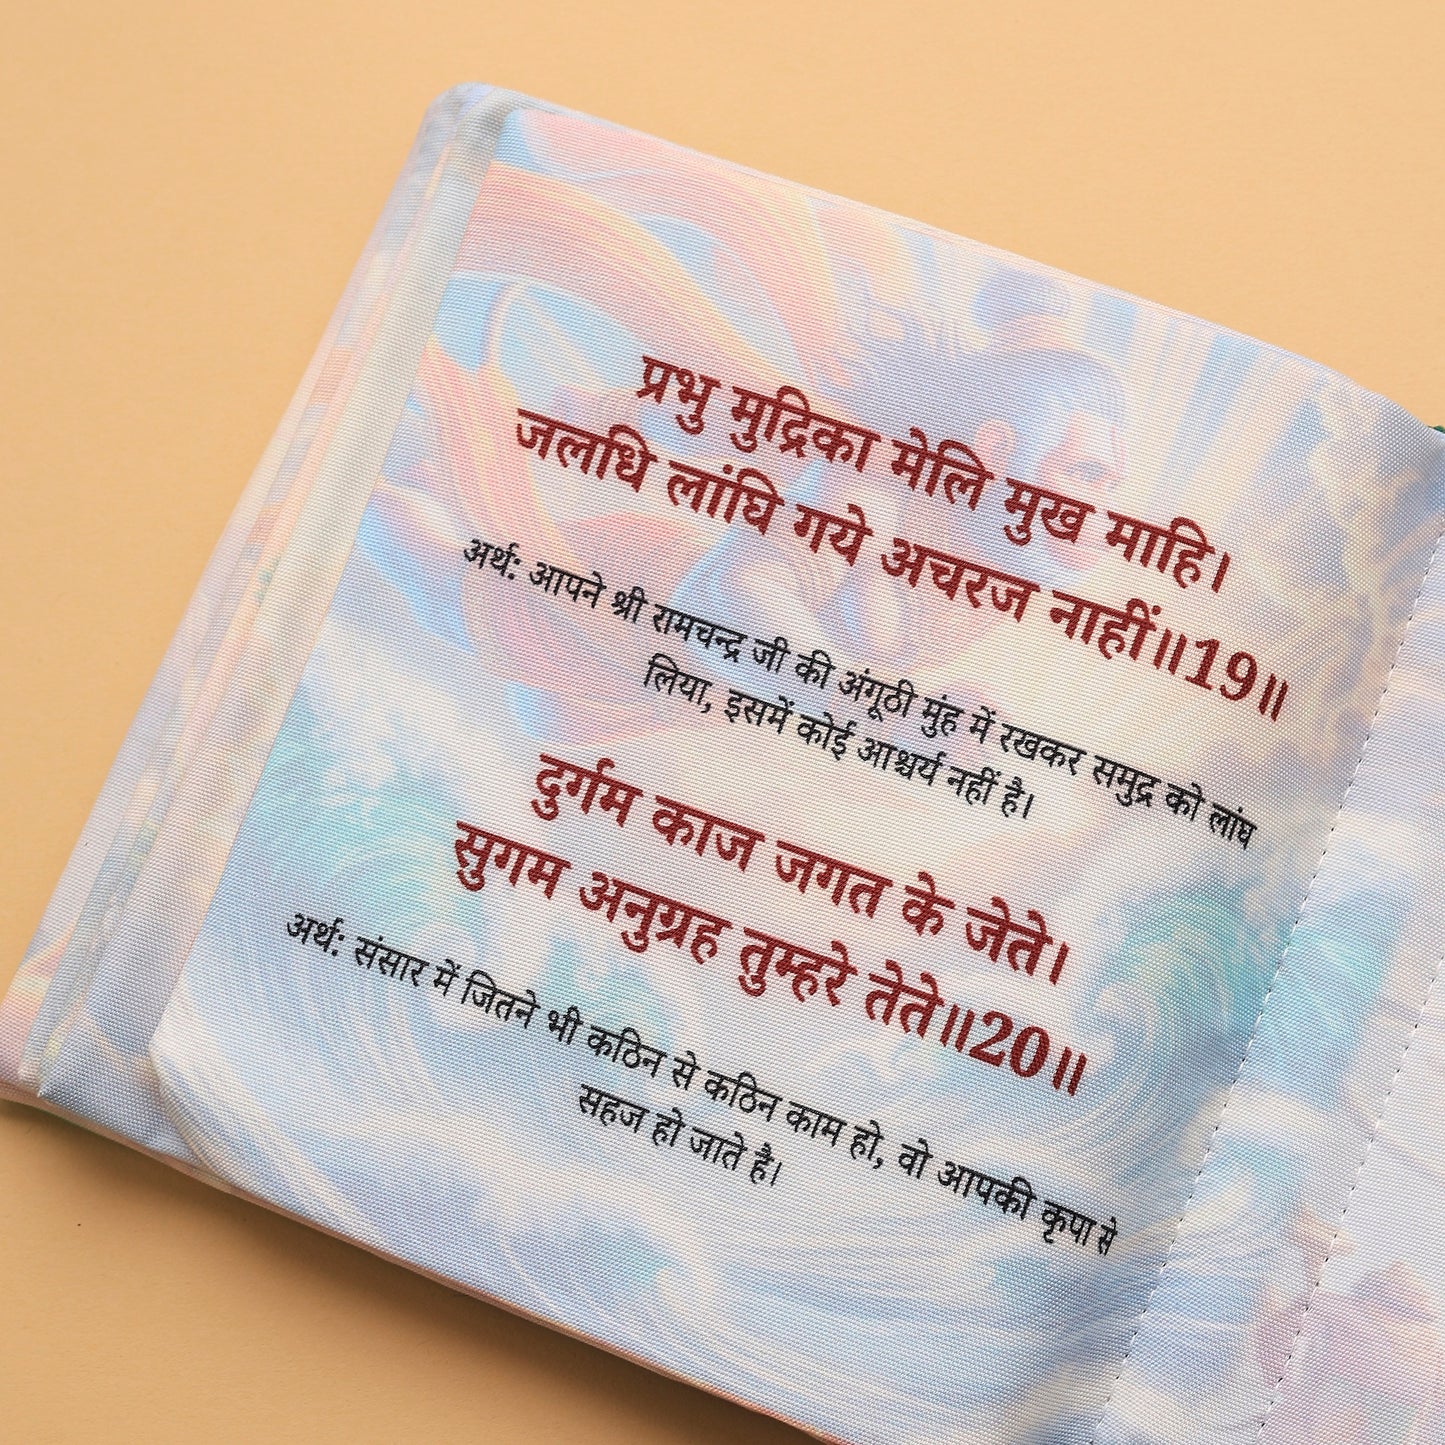 प्रभु मुद्रिका मेलि मुख माहि।
जलधि लांघि गये अचरज नाहीं॥19॥
अर्थ: आपने श्री रामचन्द्र जी की अंगूठी मुंह में रखकर समुद्र को लांघ
लिया, इसमें कोई आश्चर्य नहीं है।
दुर्गम काज जगत के जेते।
सुगम अनुग्रह तुम्हरे तेते॥20॥
अर्थ: संसार में जितने भी कठिन से कठिन काम हो, वो आपकी कृपा से
सहज हो जाते है।